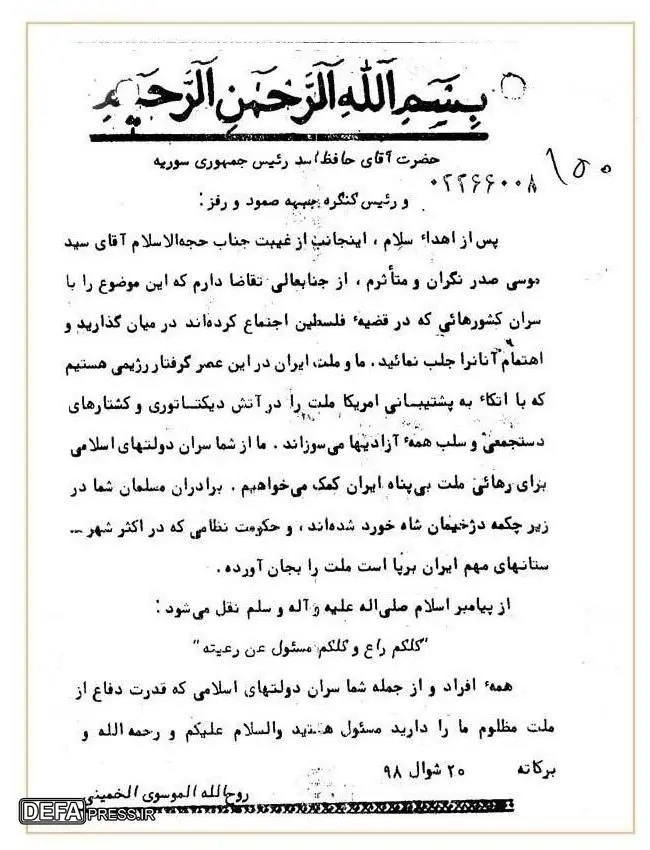 بِسْمِ اللهِ الرَّحْمٰنِ الرَّحِيمِ
حضرت آقای حافظ اسد رئیس جمهوری سوریه
۱۵۰
۰۲۲۶۶۰۰۸
و رئیس کنگره جبهه صمود و رفز :
پس از اهداء سلام ، اینجانب از غیبت جناب حجه‌الاسلام آقای سید
موسی صدر نگران و متأثرم ، از جنابعالی تقاضا دارم که این موضوع را با
سران کشورهائی که در قضیهٔ فلسطین اجتماع کرده‌اند در میان گذارید و
اهتمام آنانرا جلب نمائید . ما و ملت ایران در این عصر گرفتار رژیمی هستیم
که با اتکاء به پشتیبانی امریکا ملت را در آتش دیکتاتوری و کشتارهای
دستجمعی و سلب همهٔ آزادیها می‌سوزاند . ما از شما سران دولتهای اسلامی
برای رهائی ملت بی‌پناه ایران کمک می‌خواهیم . برادران مسلمان شما در
زیر چکمه دژخیمان شاه خورد شده‌اند ، و حکومت نظامی که در اکثر شهر ــ
ستانهای مهم ایران برپا است ملت را بجان آورده .
از پیامبر اسلام صلی‌اله علیه و آله و سلم نقل می‌شود :
"کلکم راع و کلکم مسئول عن رعیته"
همهٔ افراد و از جمله شما سران دولتهای اسلامی که قدرت دفاع از
ملت مظلوم ما را دارید مسئول هستید والسلام علیکم و رحمه الله و
برکاته ۲۵ شوال ۹۸
روح‌الله الموسوی الخمینی
DEFAPRESS.IR